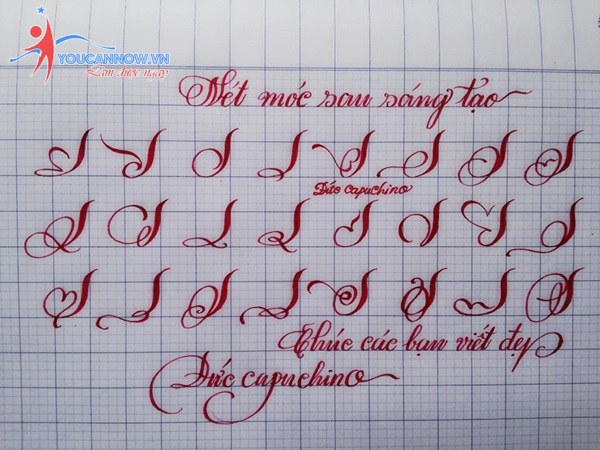 YOUCANNOW.VN
Làm được ngay
Nét móc sau sáng tạo
Đức capuchino
Chúc các bạn viết đẹp
Đức capuchino